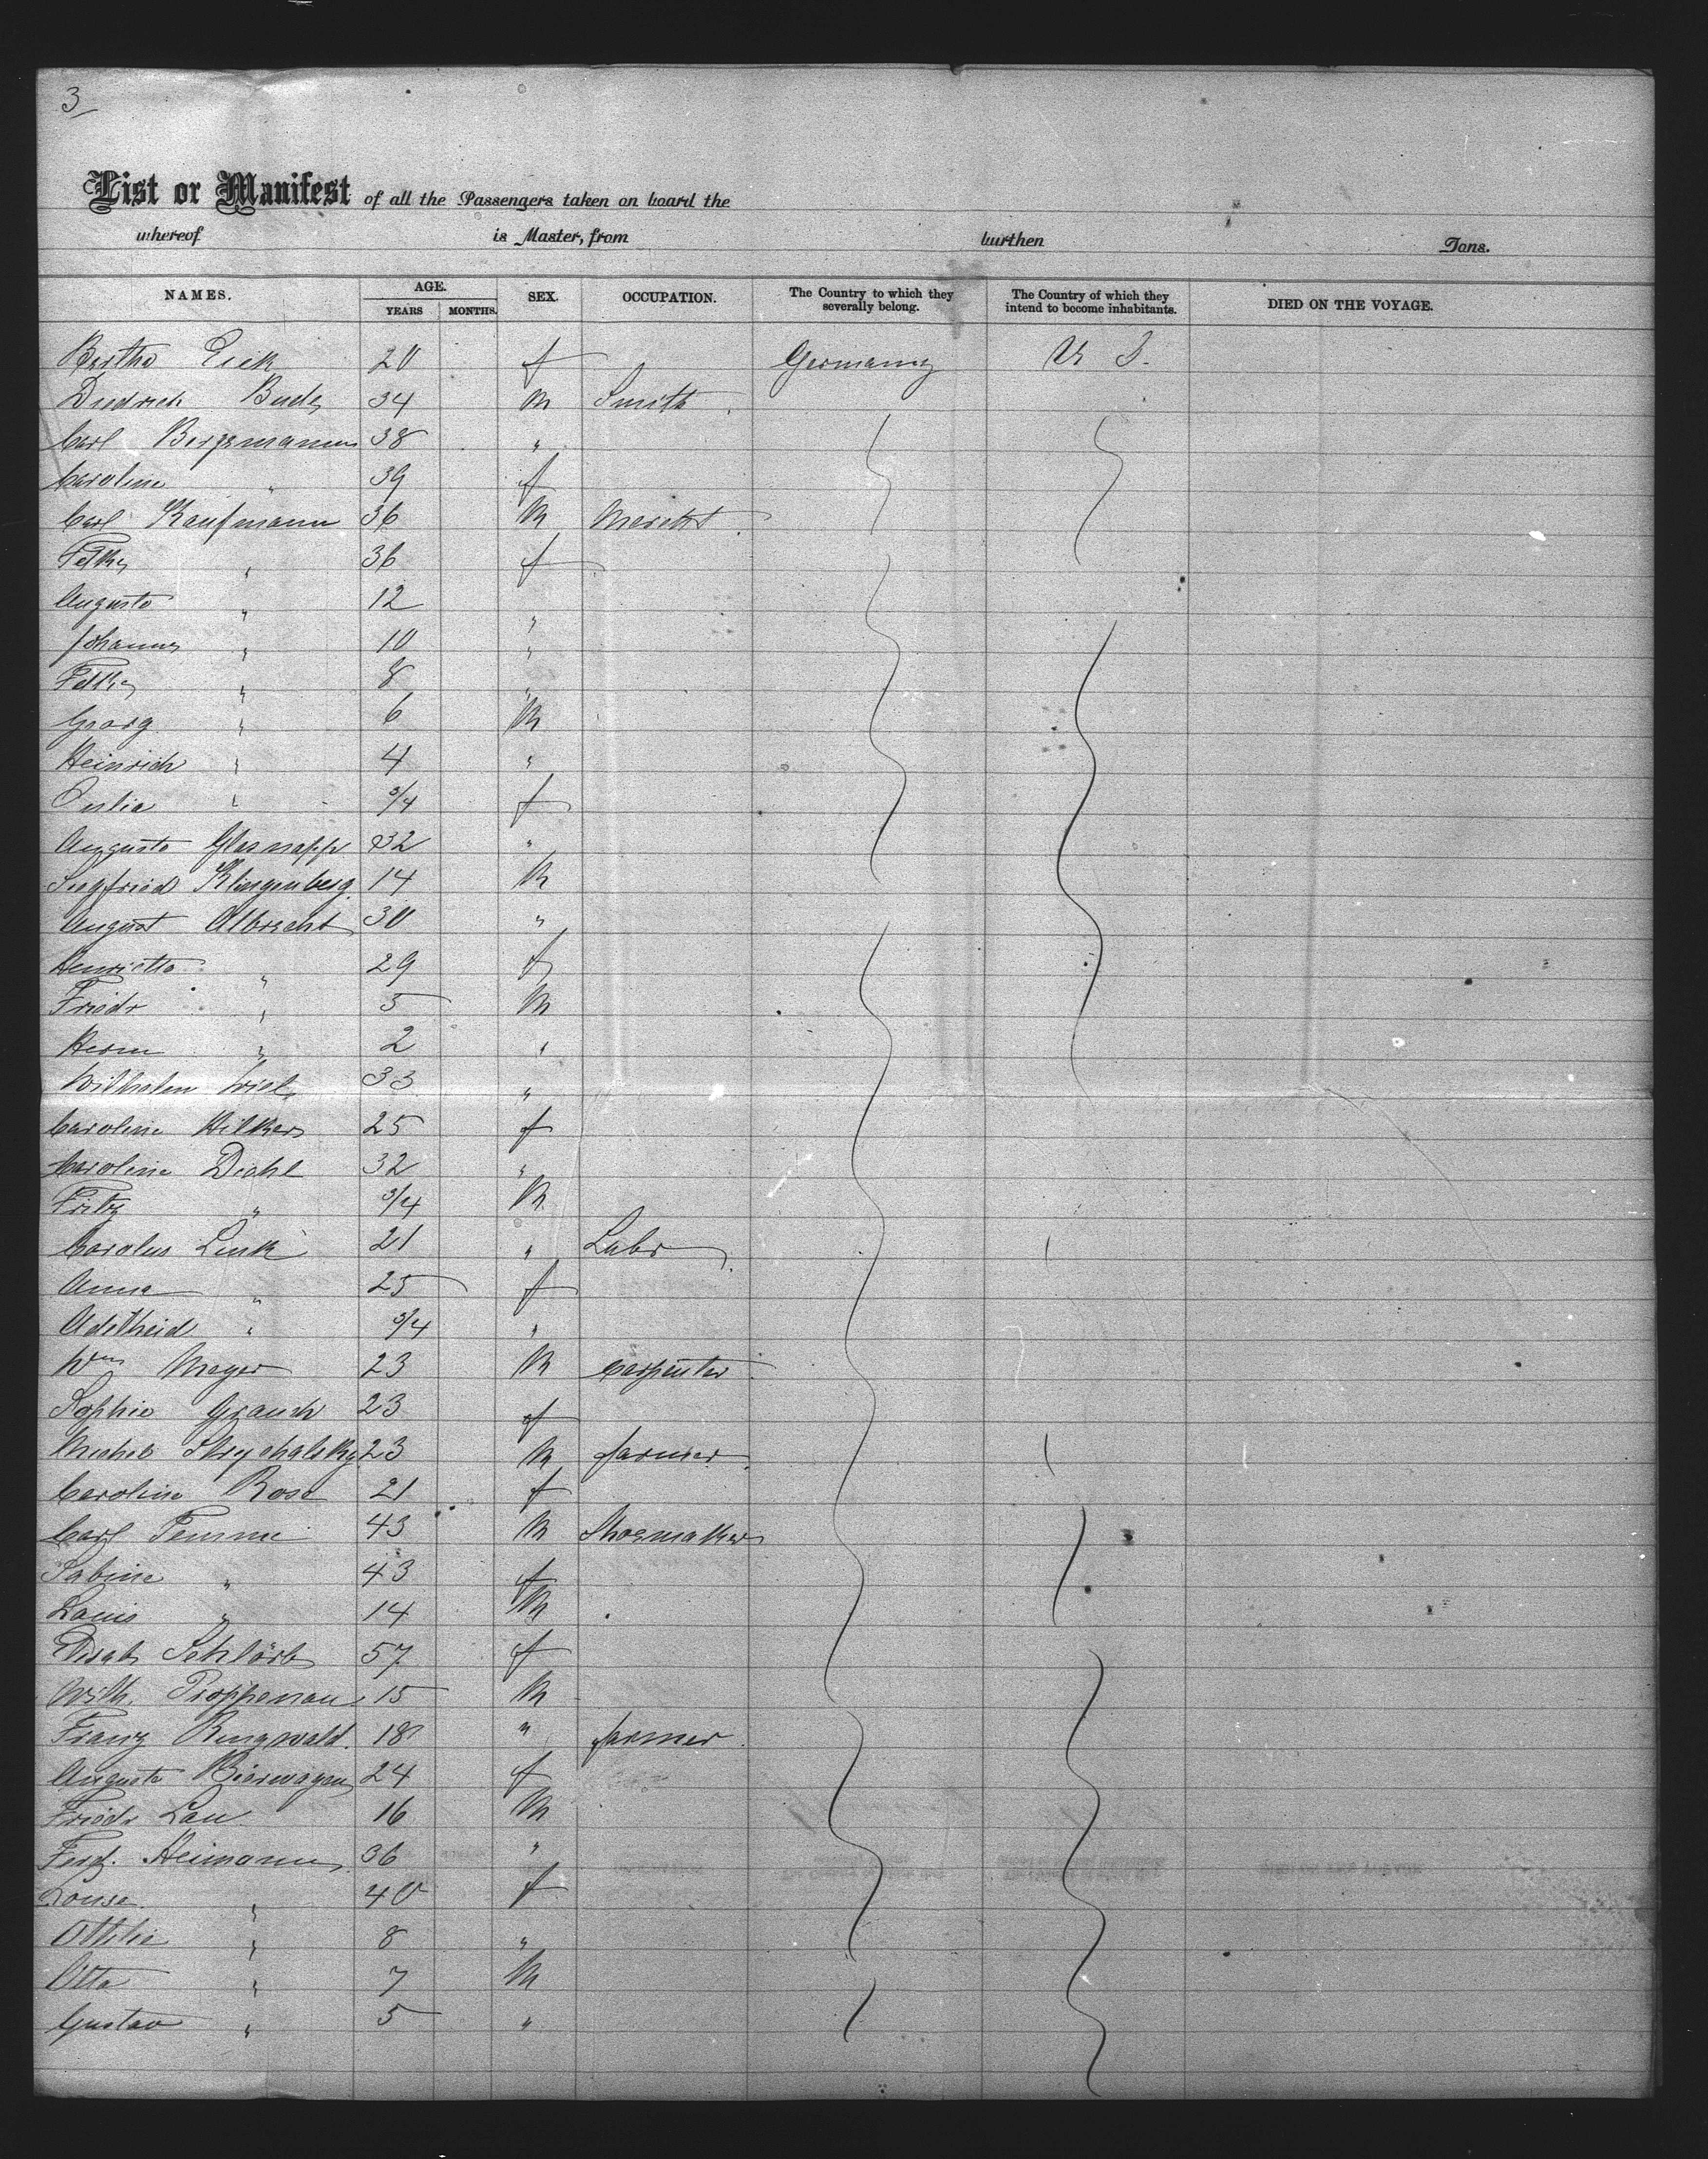 3
List or Manifest of all the Passengers taken on board the
whereof is Master, from burthen Tons.
NAMES. AGE. YEARS MONTHS. SEX. OCCUPATION. The Country to which they severally belong. The Country of which they intend to become inhabitants. DIED ON THE VOYAGE.
Bertha Eick 20 f Germany U S.
Diedrich Bude 34 m Smith
Carl Bergsmann 38 "
Caroline " 39 f
Carl Kaufmann 36 m Mercht
Fetke " 36 f
Auguste " 12 "
Johanne " 10 "
Fetke " 8 "
Georg " 6 m
Heinrich " 4 "
" 3/4 f
Auguste Glasnapp 32 "
Siegfried Klingenberg 14 m
August Albrecht 30 "
Henriette " 29 f
Friedr " 5 m
Herm " 2 "
Wilhelm 33 "
Caroline Hilkers 25 f
Caroline Diehl 32 "
Fritz " 3/4 m
Carolus Link 21 " Labr
Anna " 25 f
Adelheid " 3/4 "
Wm Meyer 23 m Carpenter
Sophie Grauch 23 f
23 m farmer
Caroline Rose 21 f
Carl Temme 43 m Shoemaker
Sabine " 43 f
Louis " 14 m
Elisab Schlörb 57 f
Wilh. Proppenau 15 m
Franz Ringwald 18 " farmer
Auguste Bierwagen 24 f
Friedr Lau 16 m
Ferd. Heimann 36 "
Louise " 40 f
Ottilie " 8 "
Otto " 7 m
Gustav " 5 "